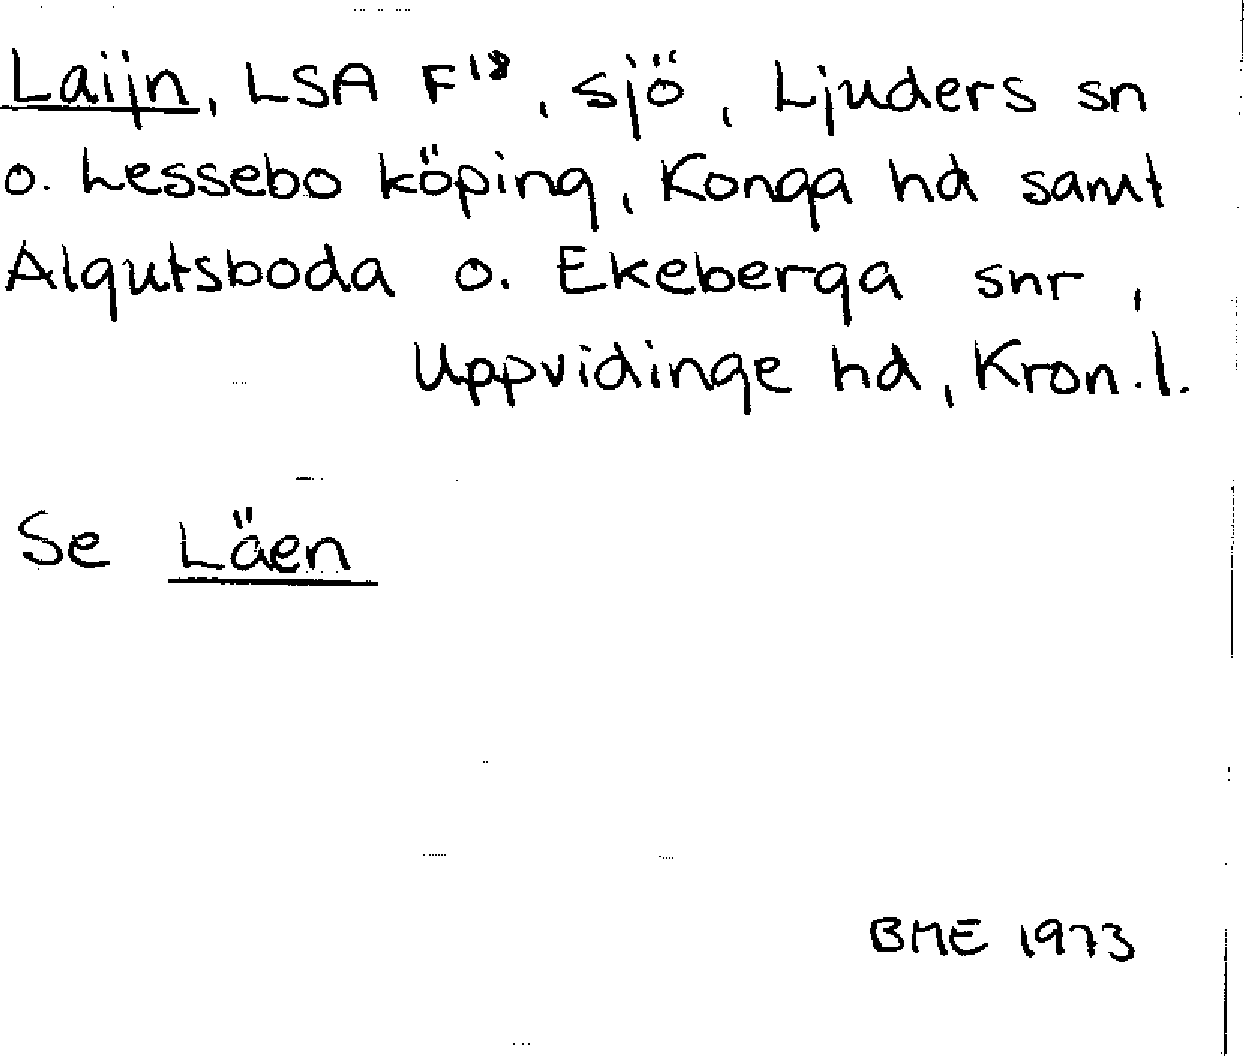 Laijn, LSA F18, sjö, Ljuders sn
o. Lessebo köping, Konga hd samt
Algutsboda o. Ekeberga snr,
Uppvidinge hd, Kron.l.
Se Läen
BME 1973